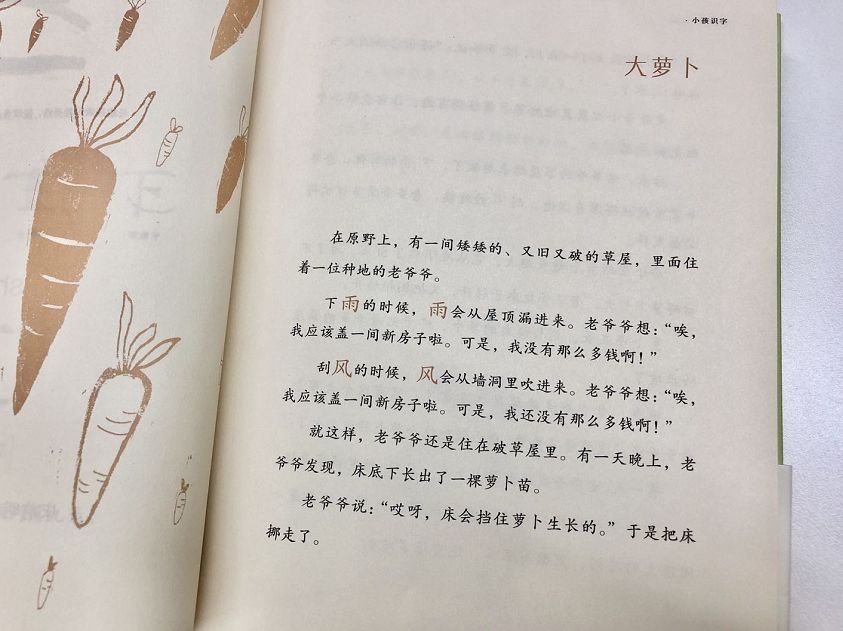 ·小孩识字
大萝卜
在原野上，有一间矮矮的、又旧又破的草屋，里面住
着一位种地的老爷爷。
下雨的时候，雨会从屋顶漏进来。老爷爷想：“唉，
我应该盖一间新房子啦。可是，我没有那么多钱啊！”
刮风的时候，风会从墙洞里吹进来。老爷爷想：“唉，
我应该盖一间新房子啦。可是，我还没有那么多钱啊！”
就这样，老爷爷还是住在破草屋里。有一天晚上，老
爷爷发现，床底下长出了一棵萝卜苗。
老爷爷说：“哎呀，床会挡住萝卜生长的。”于是把床
挪走了。